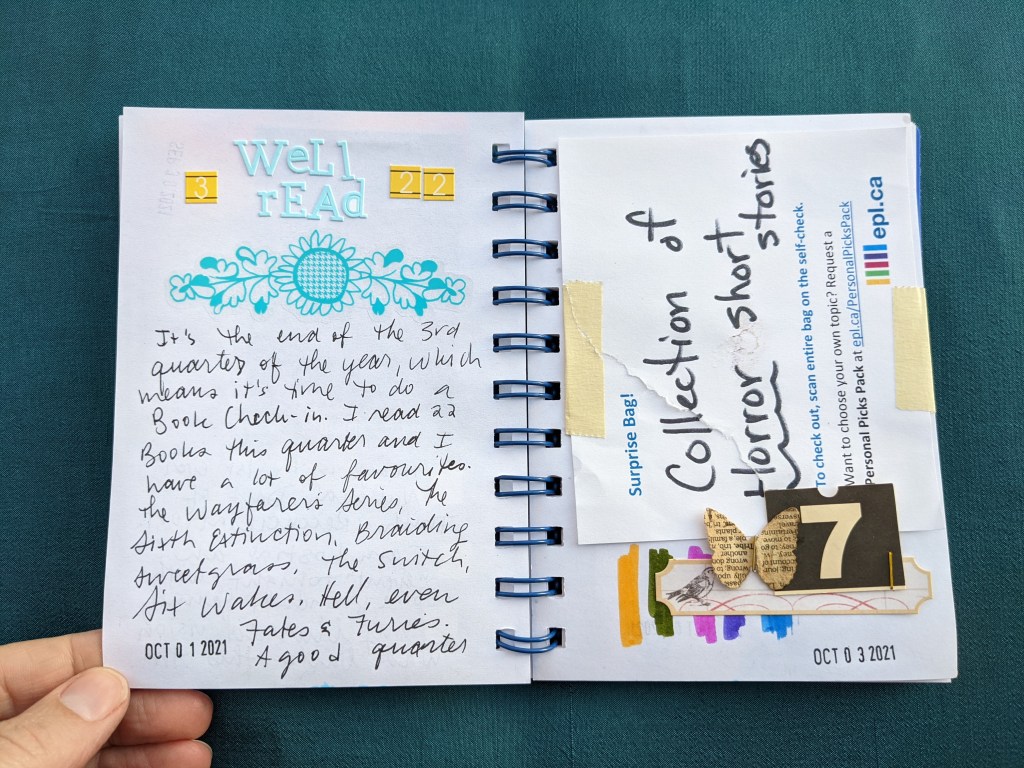 WeLl
rEAd
3
22
It's the end of the 3rd
quarter of the year, which
means it's time to do a
Book Check-in. I read 22
Books this quarter and I
have a lot of favourites.
the Wayfarers Series, The
Sixth Extinction, Braiding
Sweetgrass, The Switch,
Six Wakes. Hell, even
Fates & Furies.
A good quarter
OCT 0 1 2021
Surprise Bag!
Collection of
Horror short
stories
To check out, scan entire bag on the self-check.
Want to choose your own topic? Request a
Personal Picks Pack at epl.ca/PersonalPicksPack
epl.ca
7
OCT 0 3 2021